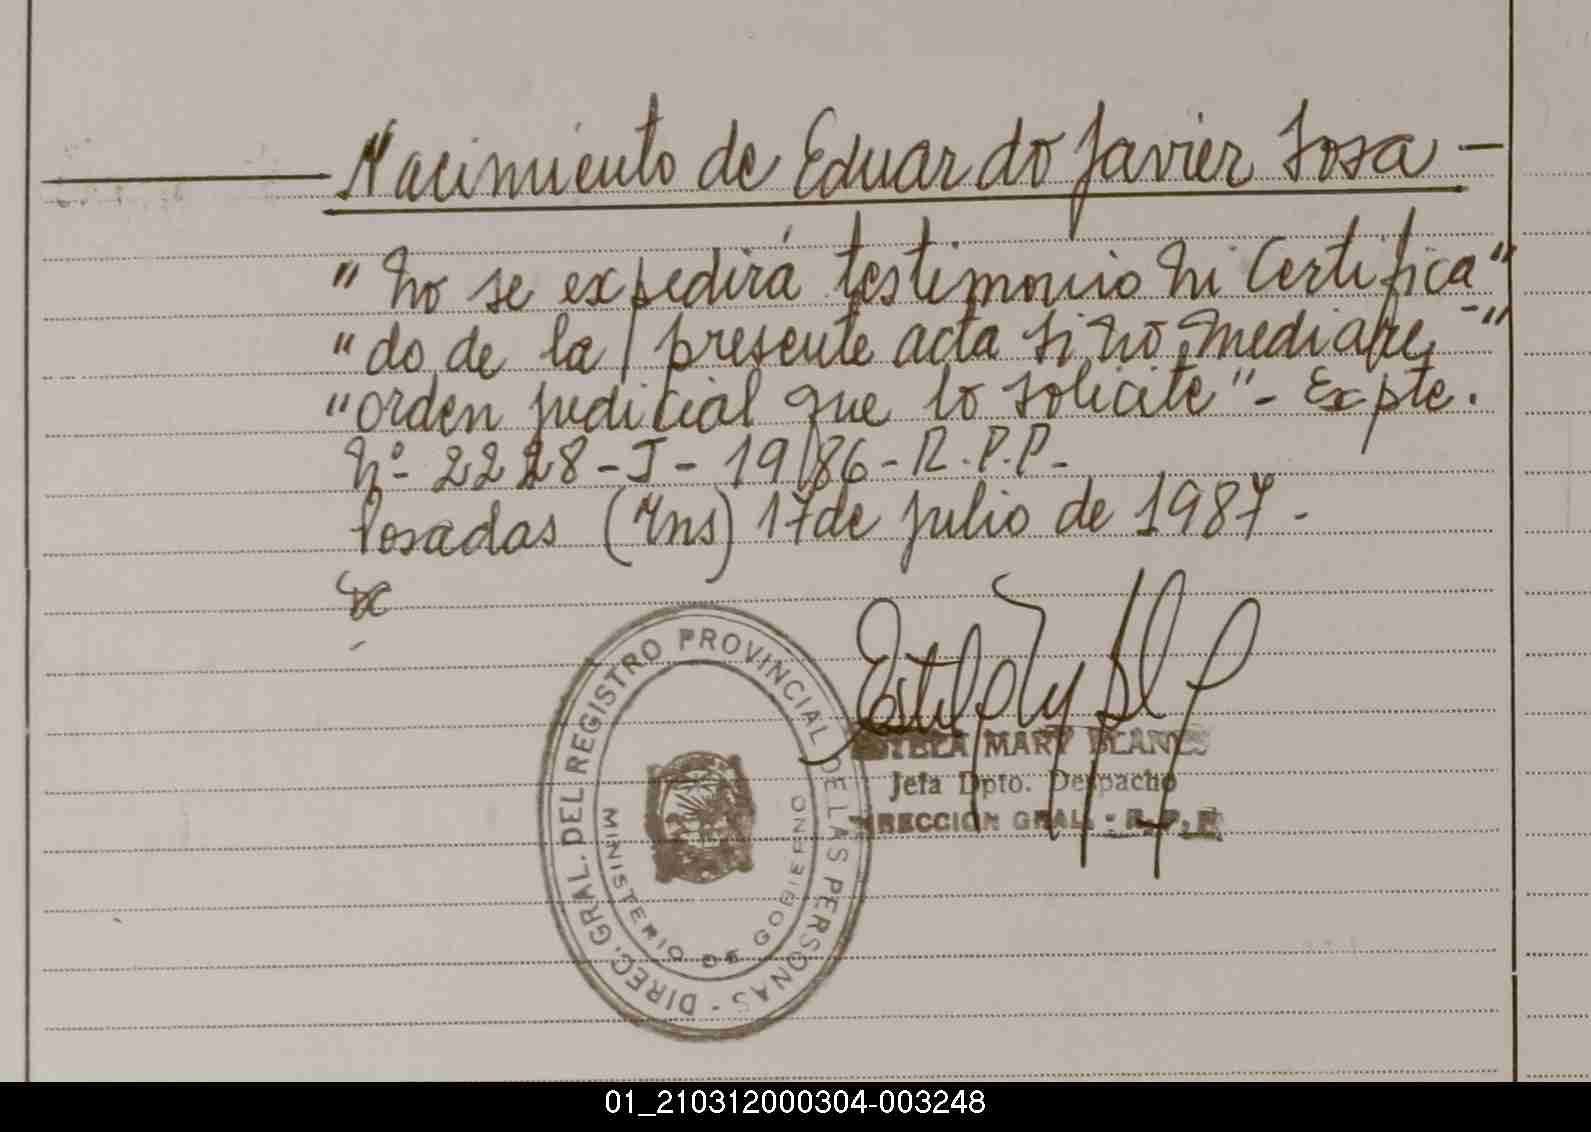 Nacimiento de Eduardo Javier Sosa -
"No se expedirá testimonio ni Certifica"
"do de la presente acta si no mediare -"
"orden judicial que lo solicite" - Expte.
Nº- 2228-J-1986-R.P.P-
Posadas (Mns) 17 de julio de 1987 -
DIREC. GRAL. DEL REGISTRO PROVINCIAL DE LAS PERSONAS -
MINISTERIO DE GOBIERNO
ESTELA MARY BLANES
Jefa Dpto. Despacho
DIRECCION GRAL. - R. P. P.
01_210312000304-003248